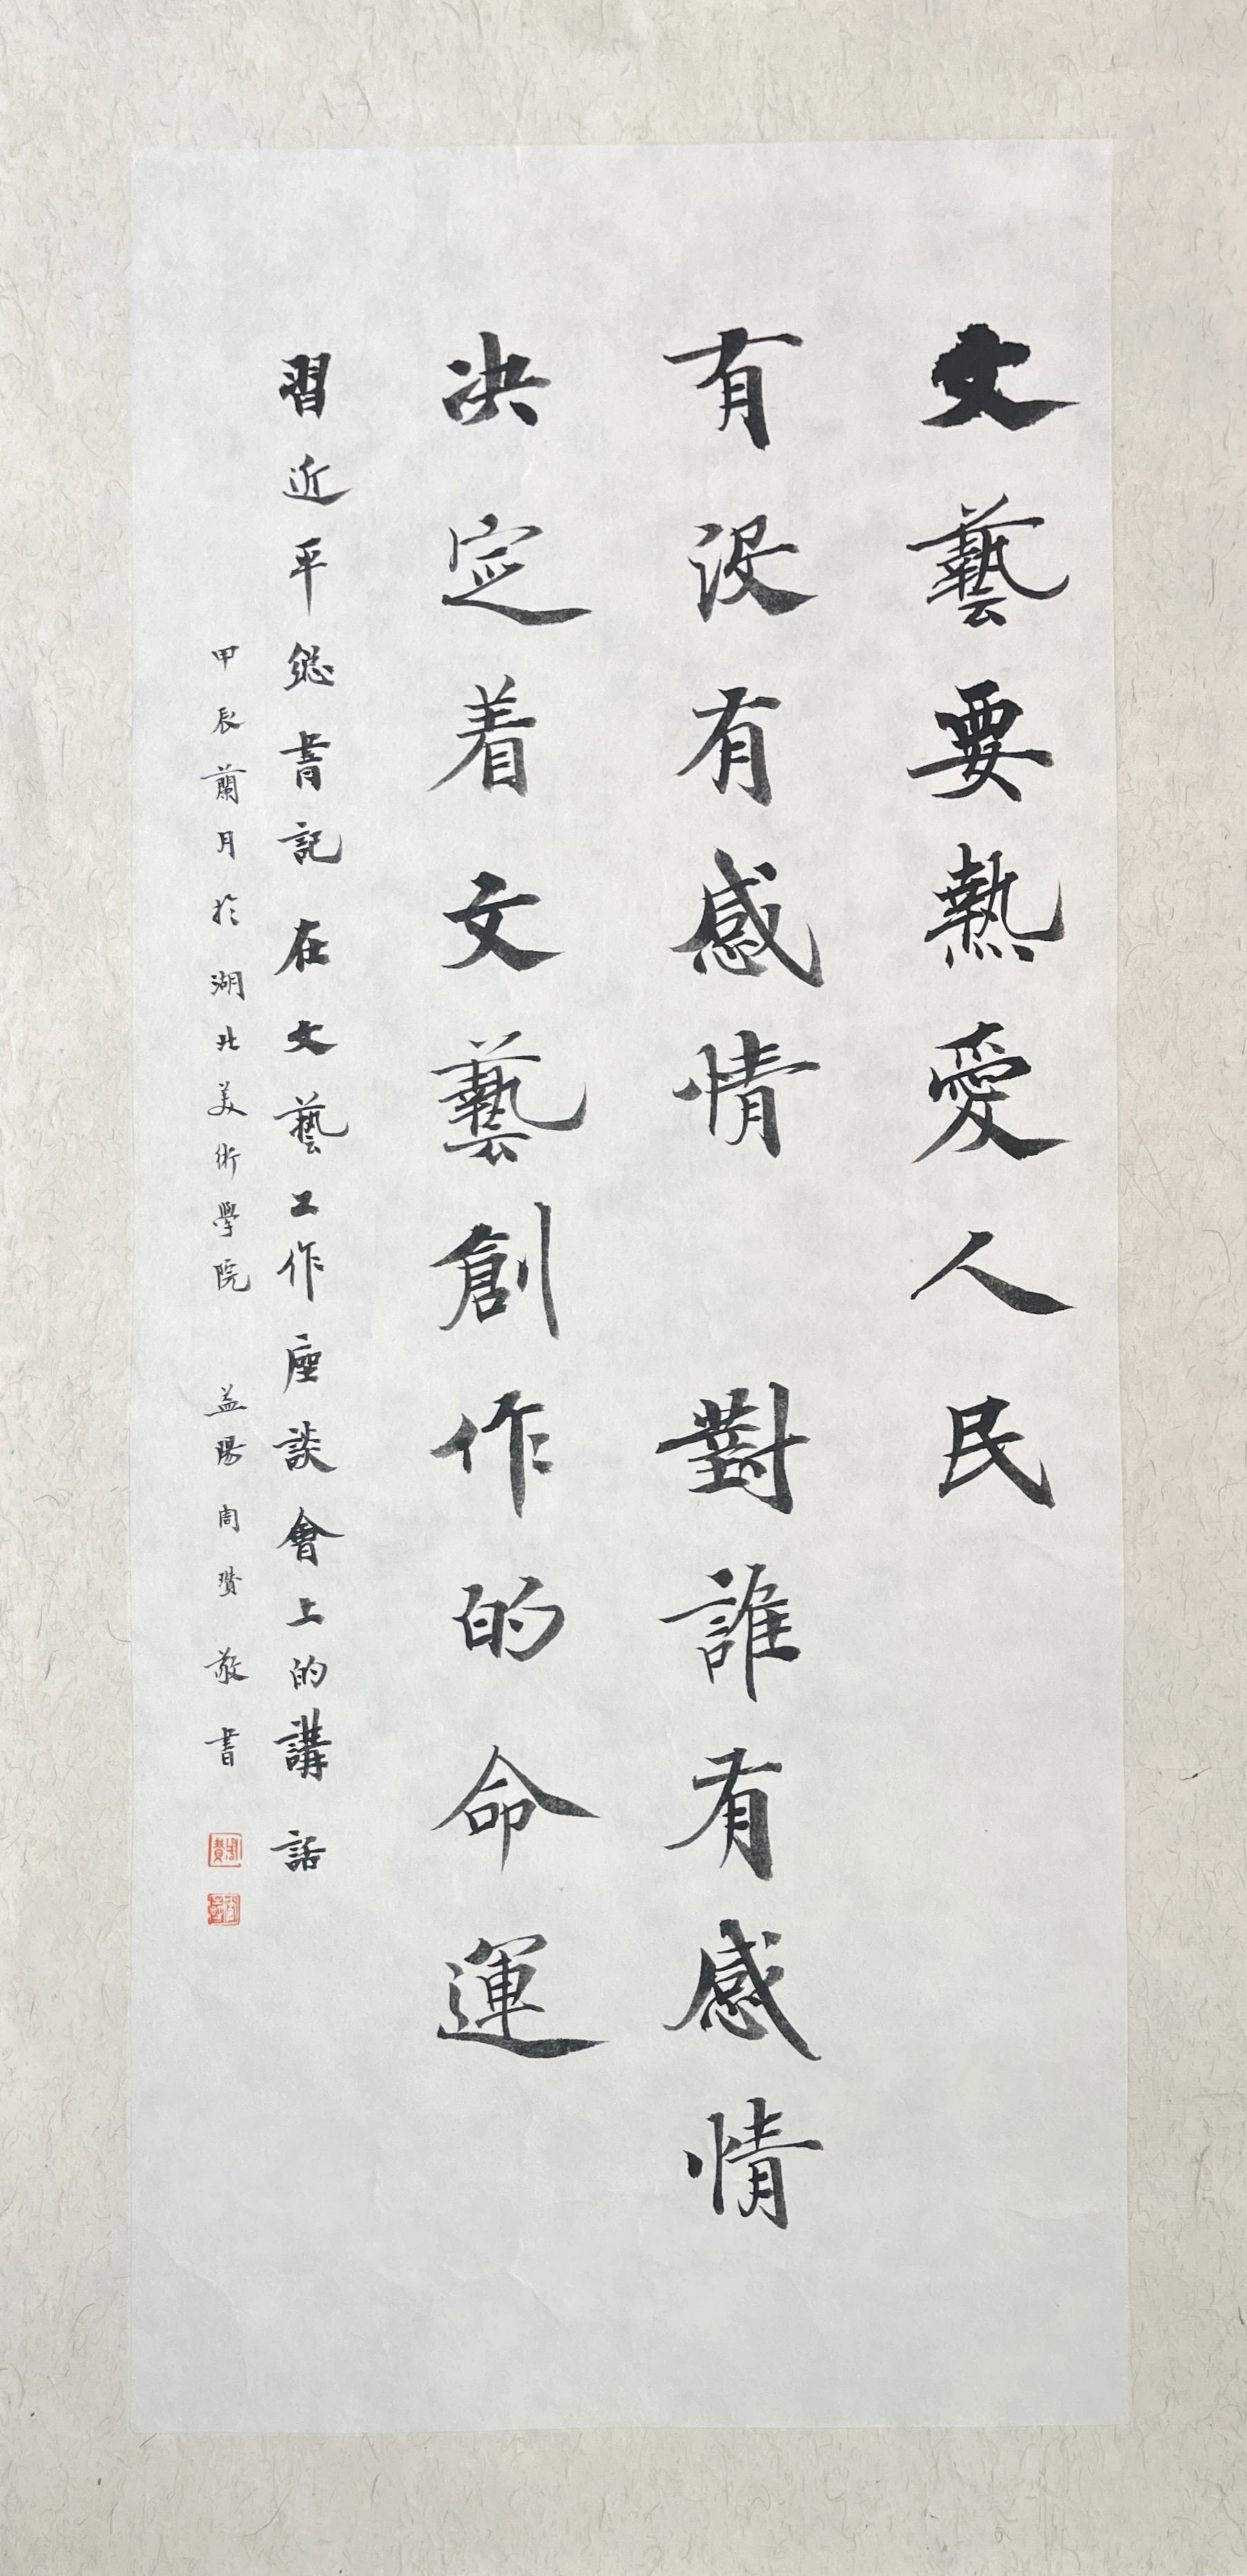 文藝要熱愛人民
有没有感情 對誰有感情
决定着文藝創作的命運
習近平總書記在文藝工作座談會上的講話
甲辰蘭月於湖北美術學院 益陽周贊敬書